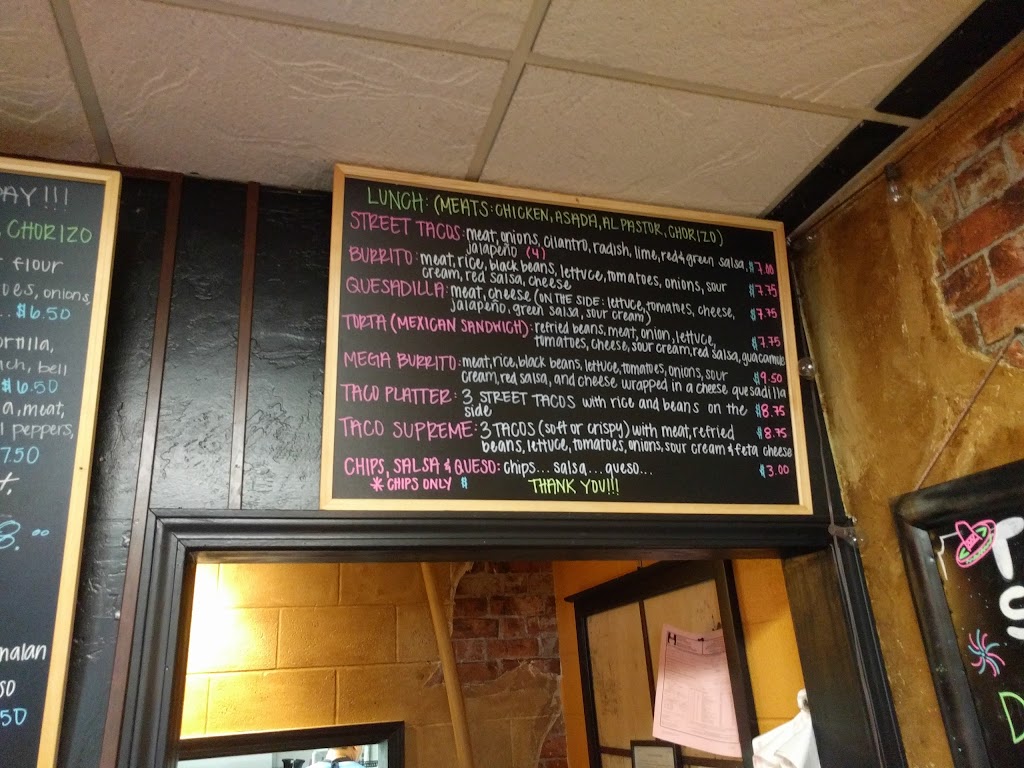 AY !!!
CHORIZO
flour
oes, onions,
$6.50
ortilla,
nch, bell
$6.50
a, meat,
l peppers,
7.50
8.00
malan
so
50
LUNCH: (MEATS: CHICKEN, ASADA, AL PASTOR, CHORIZO)
STREET TACOS: meat, onions, cilantro, radish, lime, red & green salsa, $7.00
jalapeño (4)
BURRITO: meat, rice, black beans, lettuce, tomatoes, onions, sour $7.75
cream, red salsa, cheese
QUESADILLA: meat, cheese (ON THE SIDE: lettuce, tomatoes, cheese, $7.75
jalapeño, green salsa, sour cream)
TORTA (MEXICAN SANDWICH): refried beans, meat, onion, lettuce, $7.75
tomatoes, cheese, sour cream, red salsa, guacamole
MEGA BURRITO: meat, rice, black beans, lettuce, tomatoes, onions, sour $9.50
cream, red salsa, and cheese wrapped in a cheese quesadilla
TACO PLATTER: 3 STREET TACOS with rice and beans on the $8.75
side
TACO SUPREME: 3 TACOS (soft or crispy) with meat, refried $8.75
beans, lettuce, tomatoes, onions, sour cream & feta cheese
CHIPS, SALSA & QUESO: chips... salsa... queso... $3.00
* CHIPS ONLY $
THANK YOU!!!